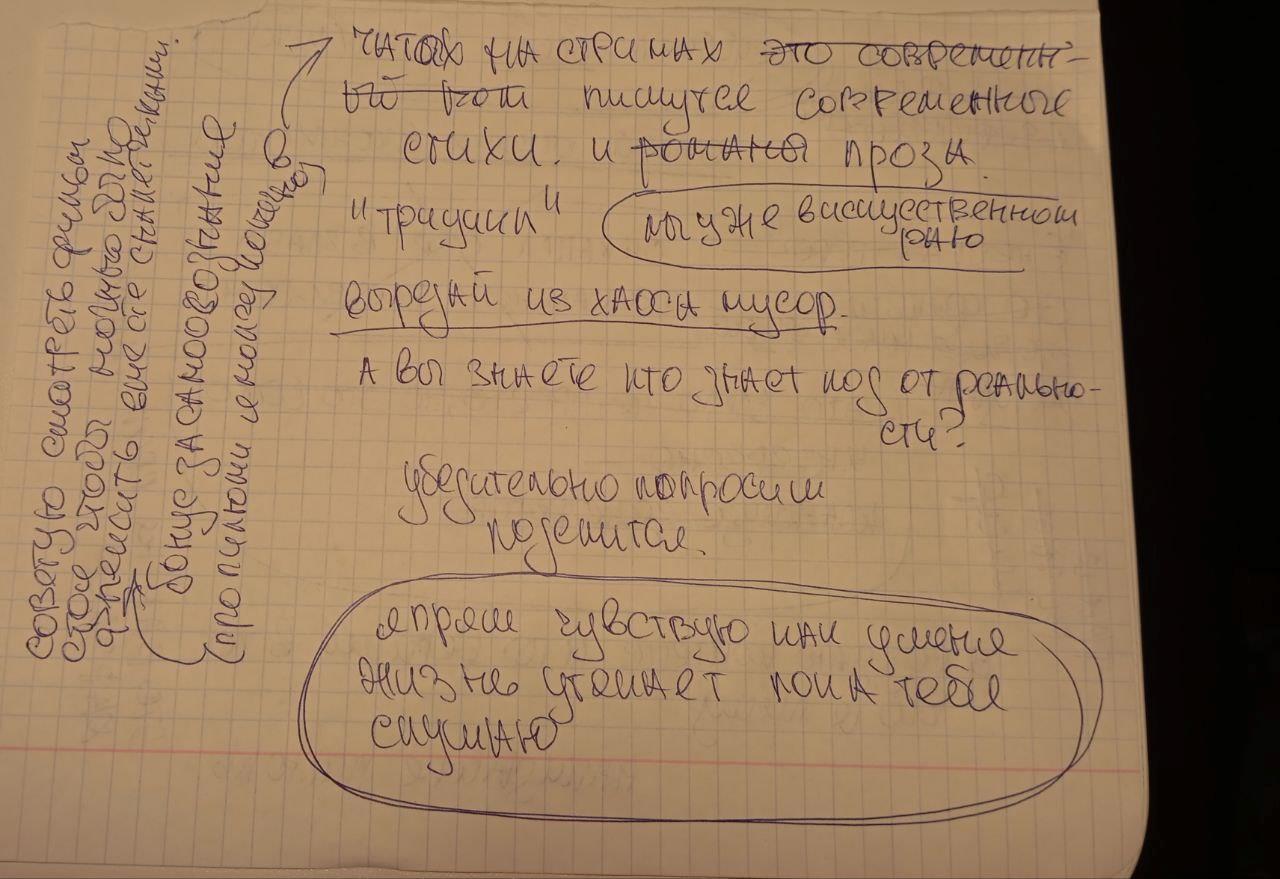 чатах на стримах это современн-
ый пишутся современные
стихи. и романы проза.
"традиши" мы уже в искусственном
раю
вырезай из хаоса мусор.
а вы знаете кто знает код от реально-
сти?
убедительно попросим
поделится.
я прям чувствую как у меня
жизнь утекает пока тебя
слушаю
советую смотреть фильм
стоя чтобы можно было
высите скалетиками.
бонус за самовознание
(прописными